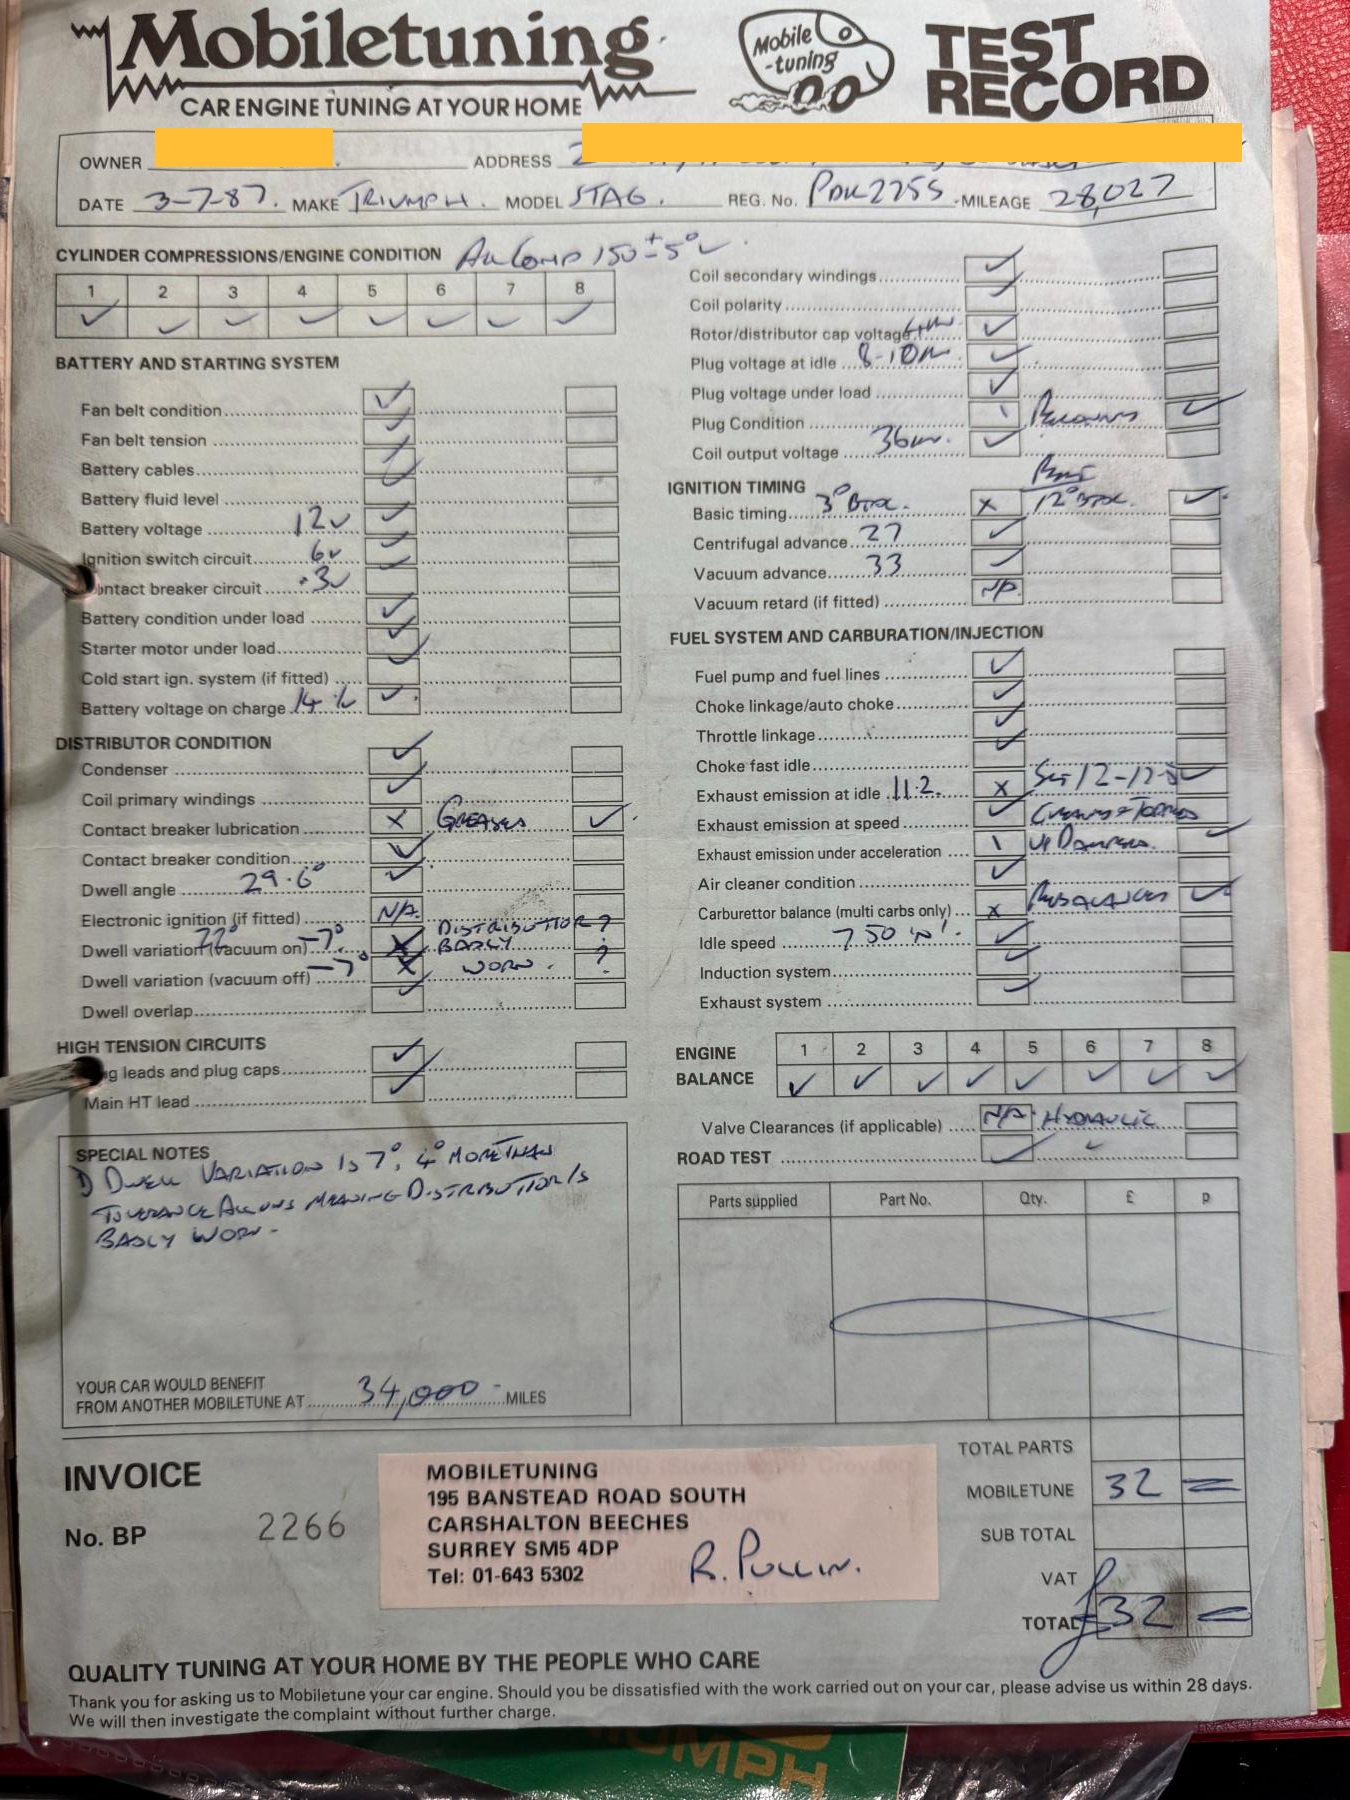 Mobiletuning
CAR ENGINE TUNING AT YOUR HOME
Mobile
-tuning
TEST
RECORD
OWNER ADDRESS
DATE 3-7-87. MAKE TRIUMPH. MODEL STAG. REG. No. PDK225S MILEAGE 28,027
CYLINDER COMPRESSIONS/ENGINE CONDITION All Comp 150 ± 5° ✓
1 2 3 4 5 6 7 8
✓ ✓ ✓ ✓ ✓ ✓ ✓ ✓
BATTERY AND STARTING SYSTEM
Fan belt condition ✓
Fan belt tension ✓
Battery cables ✓
Battery fluid level ✓
Battery voltage 12v ✓
Ignition switch circuit 6v ✓
ontact breaker circuit .3v
Battery condition under load ✓
Starter motor under load ✓
Cold start ign. system (if fitted) ✓
Battery voltage on charge 14 ✓
DISTRIBUTOR CONDITION
Condenser ✓
Coil primary windings ✓
Contact breaker lubrication x GREASED ✓
Contact breaker condition ✓
Dwell angle 29.6° ✓
Electronic ignition (if fitted) N/A.
Dwell variation (vacuum on) -7° x DISTRIBUTTOR ?
BADLY
Dwell variation (vacuum off) -7° x WORN. ?
Dwell overlap ✓
HIGH TENSION CIRCUITS
g leads and plug caps ✓
Main HT lead ✓
SPECIAL NOTES
1) DWELL VARIATION IS 7°, 4° MORE THAN
TOLERANCE ALLOWS MEANING DISTRIBUTTOR IS
BADLY WORN.
YOUR CAR WOULD BENEFIT
FROM ANOTHER MOBILETUNE AT 34,000 MILES
Coil secondary windings ✓
Coil polarity ✓
Rotor/distributor cap voltage ✓
Plug voltage at idle 8-10kv ✓
Plug voltage under load ✓
Plug Condition \ ✓
Coil output voltage 36kv. ✓
IGNITION TIMING
Basic timing 3° BTDC. x 12° BTDC. ✓
Centrifugal advance 27 ✓
Vacuum advance 33 ✓
Vacuum retard (if fitted) N/A.
FUEL SYSTEM AND CARBURATION/INJECTION
Fuel pump and fuel lines ✓
Choke linkage/auto choke ✓
Throttle linkage ✓
Choke fast idle ✓
Exhaust emission at idle 11.2. x SET ✓
Exhaust emission at speed ✓ CLEANED & TOPPED
Exhaust emission under acceleration \ UP DAMPERS. ✓
Air cleaner condition ✓
Carburettor balance (multi carbs only) x REBALANCED ✓
Idle speed 750 ✓
Induction system ✓
Exhaust system ✓
ENGINE
BALANCE
1 2 3 4 5 6 7 8
✓ ✓ ✓ ✓ ✓ ✓ ✓ ✓
Valve Clearances (if applicable) N/A. HYDRAULIC
ROAD TEST ✓ ✓
Parts supplied Part No. Qty. £ p
TOTAL PARTS
MOBILETUNE 32 =
SUB TOTAL
VAT
TOTAL £32 =
INVOICE
No. BP 2266
MOBILETUNING
195 BANSTEAD ROAD SOUTH
CARSHALTON BEECHES
SURREY SM5 4DP
Tel: 01-643 5302
R. PULLIN.
QUALITY TUNING AT YOUR HOME BY THE PEOPLE WHO CARE
Thank you for asking us to Mobiletune your car engine. Should you be dissatisfied with the work carried out on your car, please advise us within 28 days.
We will then investigate the complaint without further charge.
UMPH